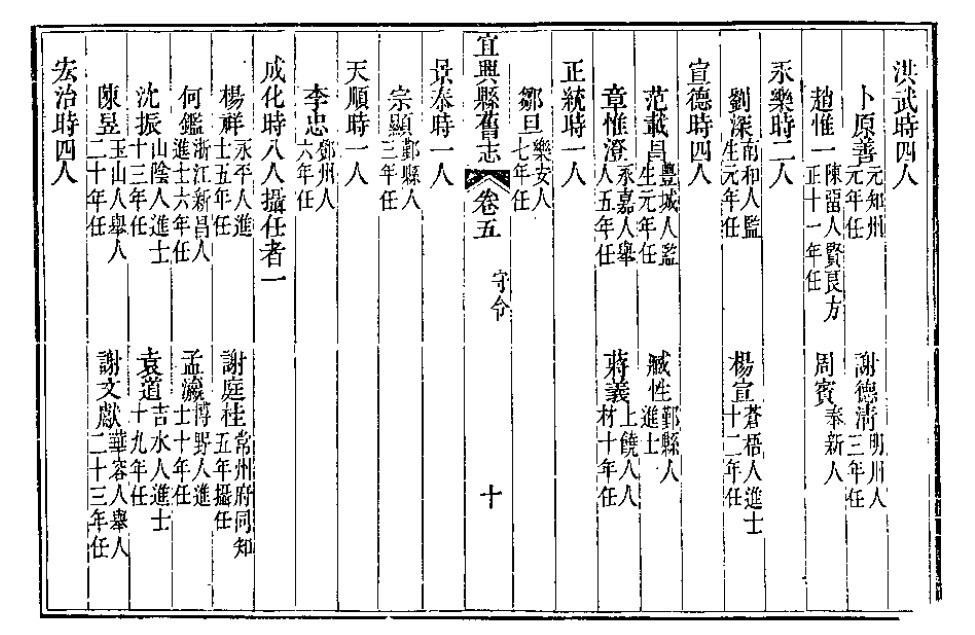 洪武時四人
卜原善元知州元年任　謝德淸明川人三年任
趙惟一陳畱人賢良方正十一年任　周賓奉新人
永樂時二人
劉深南和人監生元年任　楊宣蒼梧人進士十二年任
宣德時四人
范載昌豐城人監生元年任　臧性鄞縣人進士
章惟澄永嘉人舉人五年任　蔣義上饒人人材十年任
正統時一人
鄒旦樂安人七年任
宜興縣舊志　卷五　守令　十
景泰時一人
宗顯鄞縣人三年任
天順時一人
李忠鄧州人六年任
成化時八人攝任者一
楊祥永平人進士五年任　謝庭桂常州府同知五年攝任
何鑑浙江新昌人進士六年任　孟瀛博野人進士十年任
沈振山陰人進士十三年任　袁道吉水人進士十九年任
陳昱玉山人舉人二十年任　謝文獻華容人舉人二十三年任
宏治時四人